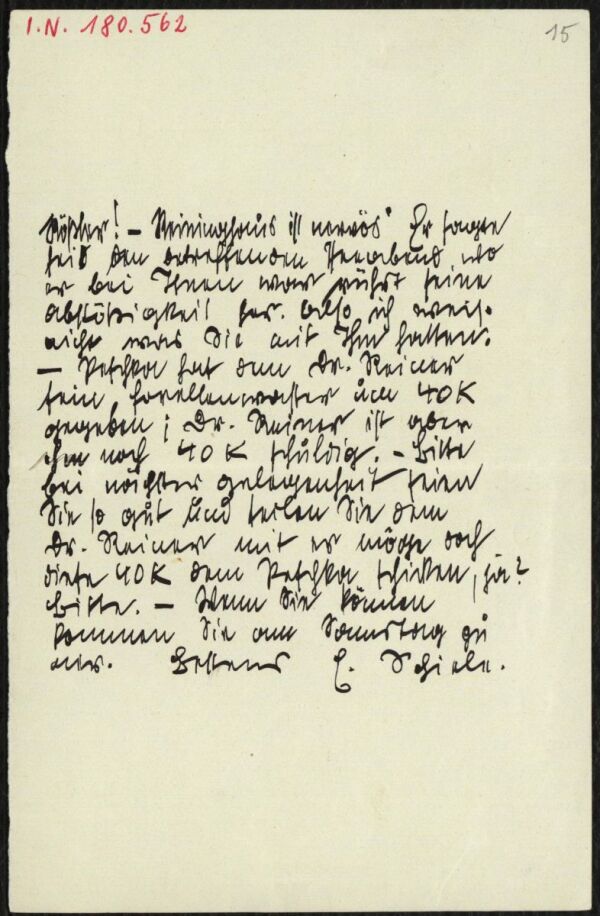 I.N. 180.562
15
Rößler! – Reininghaus ist nervös. Er sagte
seit dem betreffenden Abend wo
er bei Ihnen war rührt seine
abstößigkeit her. also ich weis
nicht was Sie mit Ihm hatten.
– Peschka hat dem Dr. Reiner
sein forellenwasser um 40 K
gegeben; Dr. Reiner ist aber
ihm noch 40 K schuldig. – Bitte
bei nächster gelegenheit seien
Sie so gut und teilen Sie dem
Dr. Reiner mit er möge doch
diese 40 K dem Peschka schicken, ja?
Bitte. – Wenn Sie können
kommen Sie am Samstag zu
mir. Bestens E. Schiele.